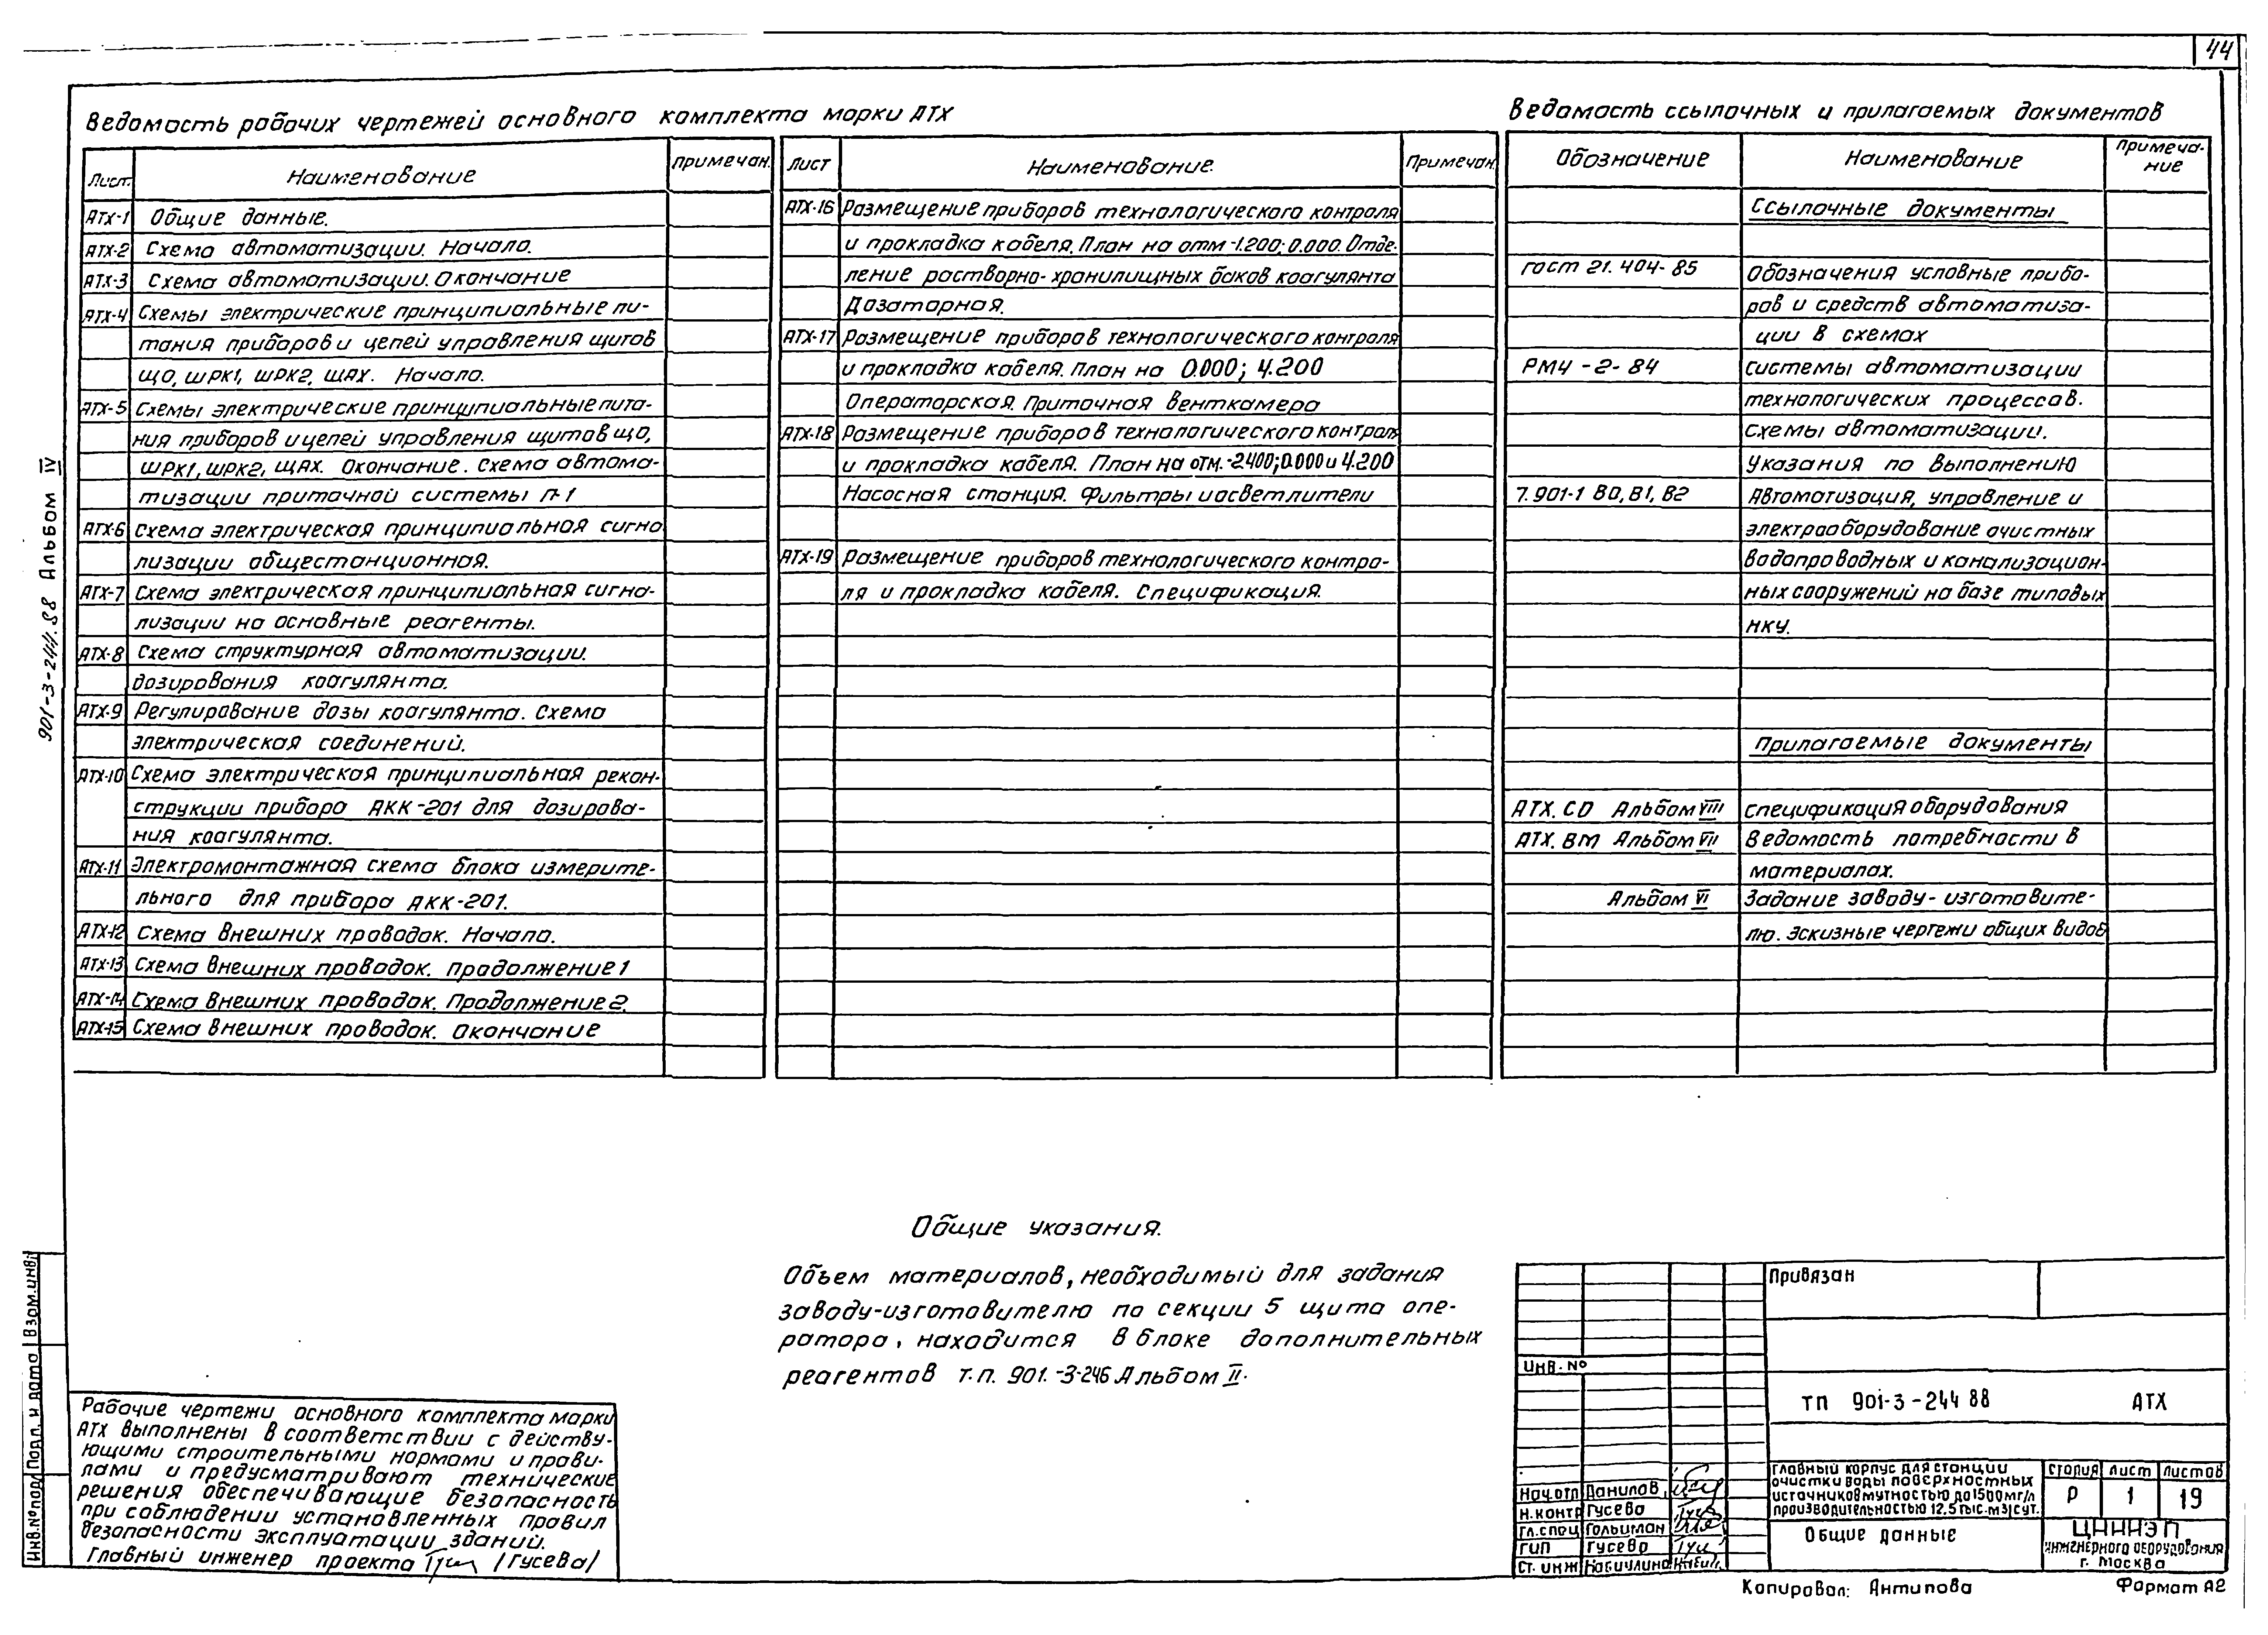 44
Ведомость рабочих чертежей основного комплекта марки АТХ
Лист. Наименование Примечан.
АТХ-1 Общие данные.
АТХ-2 Схема автоматизации. Начало.
АТХ-3 Схема автоматизации. Окончание
АТХ-4 Схемы электрические принципиальные пи-
тания приборов и цепей управления щитов
ЩО, ШРК1, ШРК2, ЩАХ. Начало.
АТХ-5 Схемы электрические принципиальные пита-
ния приборов и цепей управления щитов ЩО,
ШРК1, ШРК2, ЩАХ. Окончание. Схема автома-
тизации приточной системы П-1
АТХ-6 Схема электрическая принципиальная сигна
лизации общестанционная.
АТХ-7 Схема электрическая принципиальная сигна-
лизации на основные реагенты.
АТХ-8 Схема структурная автоматизации.
дозирования коагулянта.
АТХ-9 Регулирование дозы коагулянта. Схема
электрическая соединений.
АТХ-10 Схема электрическая принципиальная рекон-
струкции прибора АКК-201 для дозирова-
ния коагулянта.
АТХ-11 Электромонтажная схема блока измерите-
льного для прибора АКК-201.
АТХ-12 Схема внешних проводок. Начало.
АТХ-13 Схема внешних проводок. Продолжение 1
АТХ-14 Схема внешних проводок. Продолжение 2.
АТХ-15 Схема внешних проводок. Окончание
Лист Наименование. Примечан.
АТХ-16 Размещение приборов технологического контроля
и прокладка кабеля. План на отм -1.200; 0.000. Отде-
ление растворно-хранилищных баков коагулянта
Дозаторная.
АТХ-17 Размещение приборов технологического контроля
и прокладка кабеля. План на 0.000; 4.200
Операторская. Приточная венткамера
АТХ-18 Размещение приборов технологического контроля
и прокладка кабеля. План на отм. -2.400; 0.000 и 4.200
Насосная станция. Фильтры и осветлители
АТХ-19 Размещение приборов технологического контро-
ля и прокладка кабеля. Спецификация.
Ведомость ссылочных и прилагаемых документов
Обозначение Наименование Примеча-
ние
Ссылочные документы
ГОСТ 21.404-85 Обозначения условные прибо-
ров и средств автоматиза-
ции в схемах
РМ4-2-84 Системы автоматизации
технологических процессов.
Схемы автоматизации.
Указания по выполнению
7.901-1 В0, В1, В2 Автоматизация, управление и
электрооборудование очистных
водопроводных и канализацион-
ных сооружений на базе типовых
НКУ.
Прилагаемые документы
АТХ.СО Альбом VIII Спецификация оборудования
АТХ.ВМ Альбом VII Ведомость потребности в
материалах.
Альбом VI Задание заводу-изготовите-
лю. Эскизные чертежи общих видов
901-3-244.88 Альбом IV
Общие указания.
Объем материалов, необходимый для задания
заводу-изготовителю по секции 5 щита опе-
ратора, находится в блоке дополнительных
реагентов т.п. 901.-3-246 Альбом II.
Взам.инв.
Подп. и дата
Инв.№ подл
Рабочие чертежи основного комплекта марки
АТХ выполнены в соответствии с действу-
ющими строительными нормами и прави-
лами и предусматривают технические
решения обеспечивающие безопасность
при соблюдении установленных правил
безопасности эксплуатации зданий.
Главный инженер проекта /Гусева/
Привязан
Инв. №
ТП 901-3-244 88 АТХ
Нач.отд Данилов
Н.контр Гусева
Гл.спец Гольцман
ГИП Гусева
Ст. инж Набиулина
Главный корпус для станции
очистки воды поверхностных
источников мутностью до 1500 мг/л
производительностью 12.5 тыс. м3/сут.
Стадия Лист Листов
Р 1 19
Общие данные
ЦНИИЭП
инженерного оборудования
г. Москва
Копировал: Антипова Формат А2